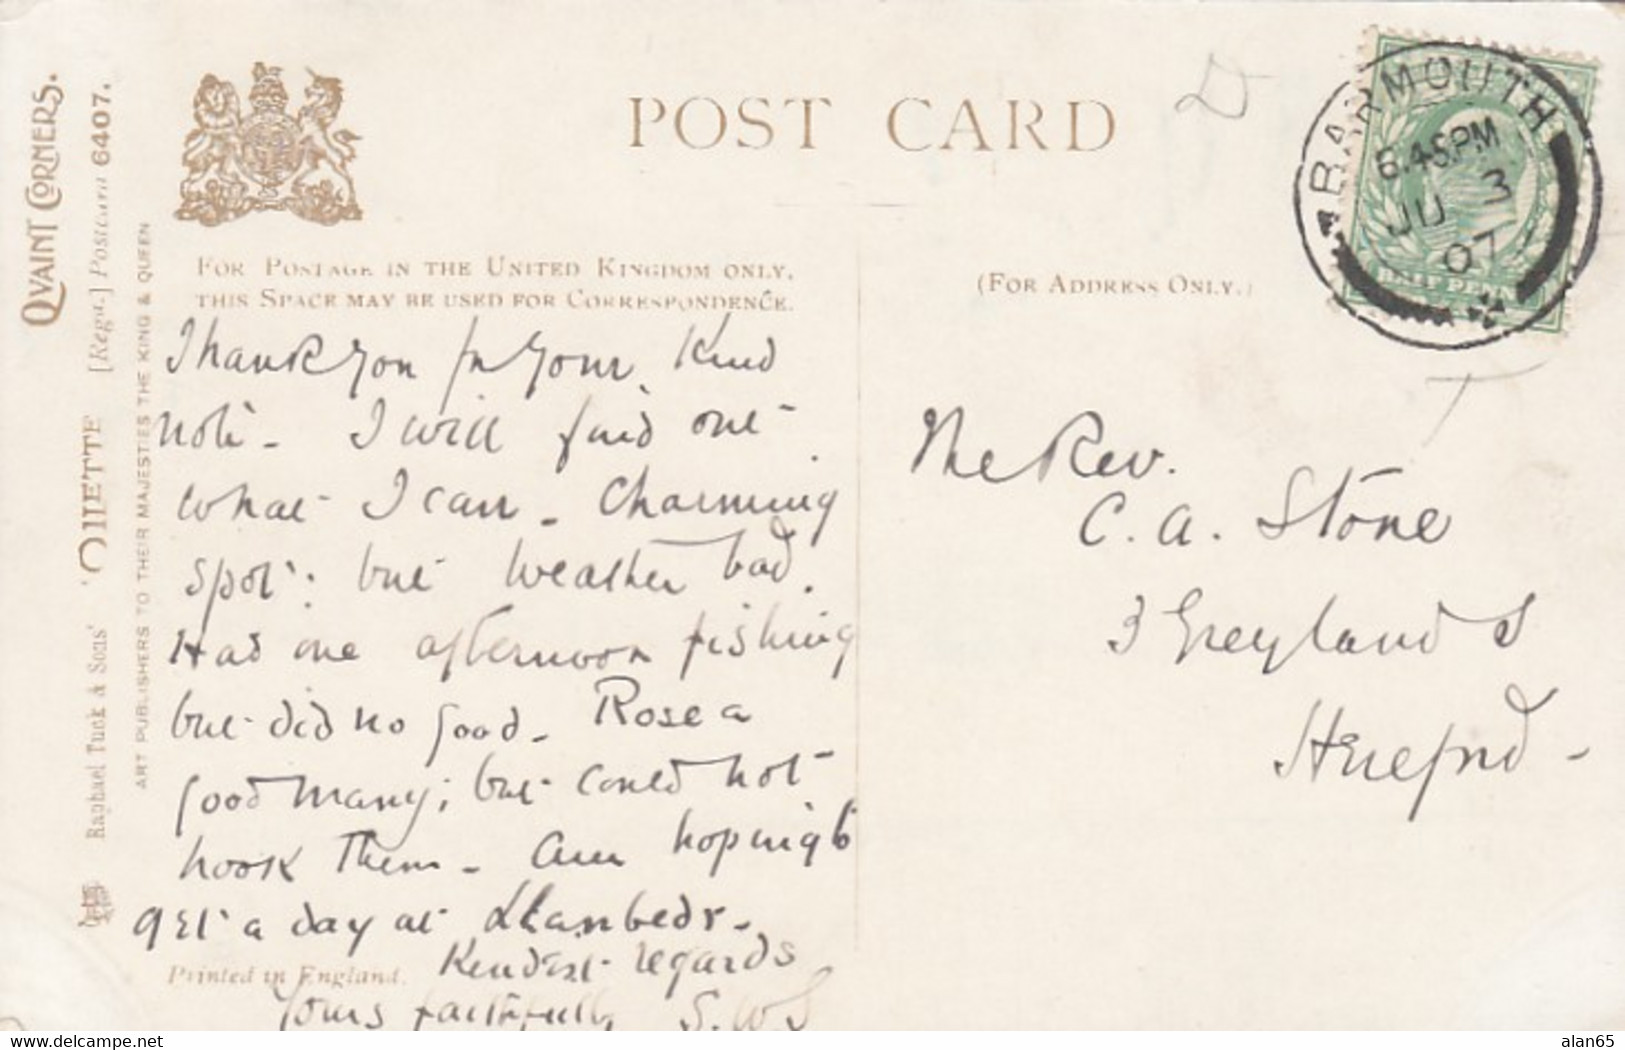 QVAINT CORNERS.
Raphael Tuck & Sons' "OILETTE" [Regd.] Postcard 6407.
ART PUBLISHERS TO THEIR MAJESTIES THE KING & QUEEN
POST CARD
FOR POSTAGE IN THE UNITED KINGDOM ONLY,
THIS SPACE MAY BE USED FOR CORRESPONDENCE.
(FOR ADDRESS ONLY.)
BARMOUTH
6.45PM
JU 3
07
HALF PENNY
Thank you for your kind
note - I will find out
what I can - Charming
spot: but weather bad.
Had one afternoon fishing
but did no good - Rose a
good many; but could not
hook them - am hoping to
get a day at Llanbedr -
Kindest regards
Yours faithfully S.W.S
Printed in England.
The Rev.
C. A. Stone
3 Greyland S
Hereford -
alan65
delcampe.net